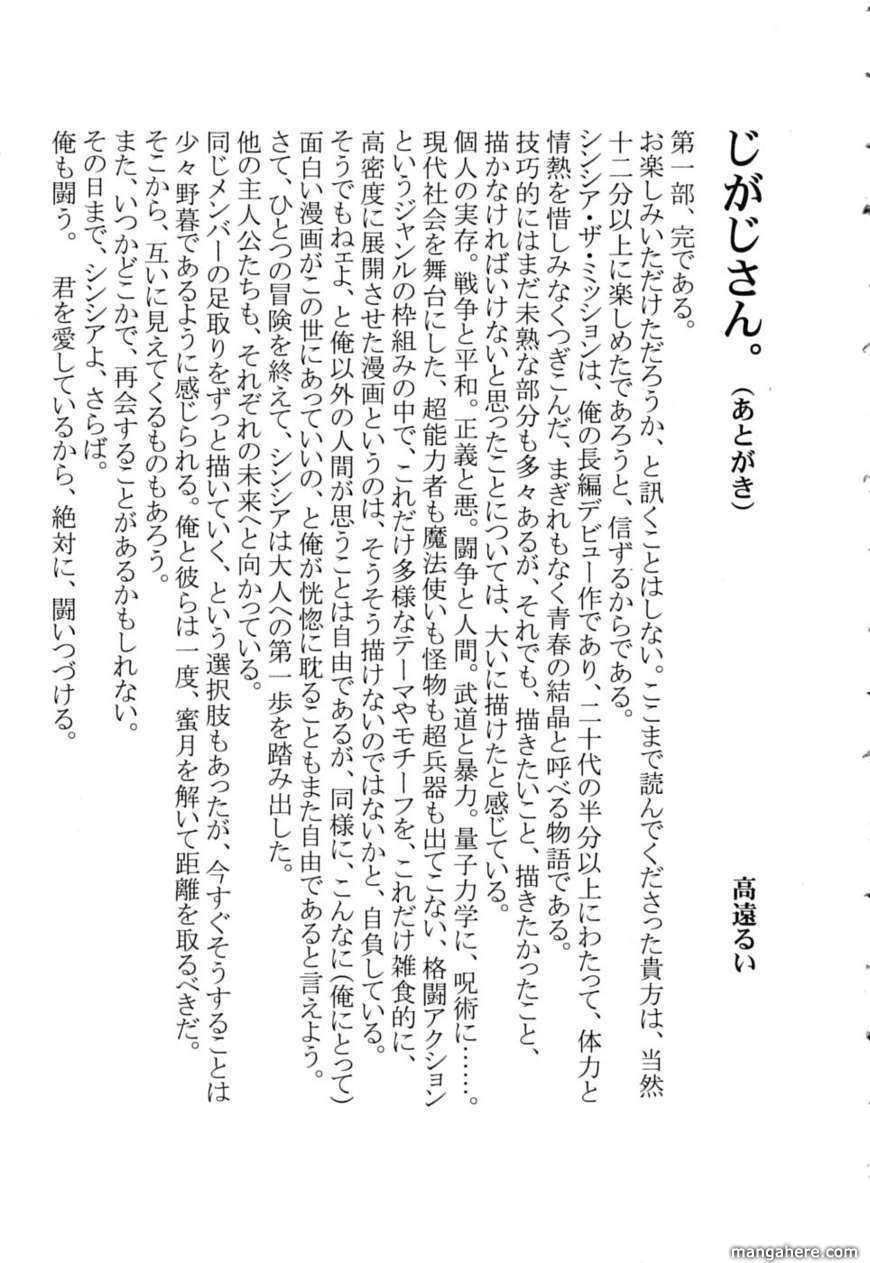 じがじさん。（あとがき）　高遠るい
第一部、完である。
お楽しみいただけただろうか、と訊くことはしない。ここまで読んでくださった貴方は、当然
十二分以上に楽しめたであろうと、信ずるからである。
シンシア・ザ・ミッションは、俺の長編デビュー作であり、二十代の半分以上にわたって、体力と
情熱を惜しみなくつぎこんだ、まぎれもなく青春の結晶と呼べる物語である。
技巧的にはまだ未熟な部分も多々あるが、それでも、描きたいこと、描きたかったこと、
描かなければいけないと思ったことについては、大いに描けたと感じている。
個人の実存。戦争と平和。正義と悪。闘争と人間。武道と暴力。量子力学に、呪術に……。
現代社会を舞台にした、超能力者も魔法使いも怪物も超兵器も出てこない、格闘アクション
というジャンルの枠組みの中で、これだけ多様なテーマやモチーフを、これだけ雑食的に、
高密度に展開させた漫画というのは、そうそう描けないのではないかと、自負している。
そうでもねェよ、と俺以外の人間が思うことは自由であるが、同様に、こんなに（俺にとって）
面白い漫画がこの世にあっていいの、と俺が恍惚に耽ることもまた自由であると言えよう。
さて、ひとつの冒険を終えて、シンシアは大人への第一歩を踏み出した。
他の主人公たちも、それぞれの未来へと向かっている。
同じメンバーの足取りをずっと描いていく、という選択肢もあったが、今すぐそうすることは
少々野暮であるように感じられる。俺と彼らは一度、蜜月を解いて距離を取るべきだ。
そこから、互いに見えてくるものもあろう。
また、いつかどこかで、再会することがあるかもしれない。
その日まで、シンシアよ、さらば。
俺も闘う。　君を愛しているから、絶対に、闘いつづける。
mangahere.com